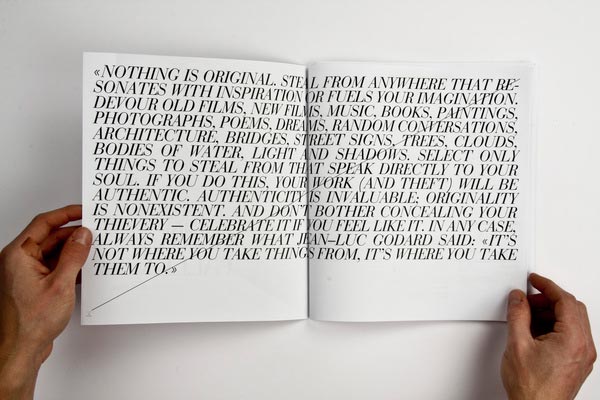 «NOTHING IS ORIGINAL. STEAL FROM ANYWHERE THAT RE-
SONATES WITH INSPIRATION OR FUELS YOUR IMAGINATION.
DEVOUR OLD FILMS, NEW FILMS, MUSIC, BOOKS, PAINTINGS,
PHOTOGRAPHS, POEMS, DREAMS, RANDOM CONVERSATIONS,
ARCHITECTURE, BRIDGES, STREET SIGNS, TREES, CLOUDS,
BODIES OF WATER, LIGHT AND SHADOWS. SELECT ONLY
THINGS TO STEAL FROM THAT SPEAK DIRECTLY TO YOUR
SOUL. IF YOU DO THIS, YOUR WORK (AND THEFT) WILL BE
AUTHENTIC. AUTHENTICITY IS INVALUABLE; ORIGINALITY
IS NONEXISTENT. AND DON'T BOTHER CONCEALING YOUR
THIEVERY — CELEBRATE IT IF YOU FEEL LIKE IT. IN ANY CASE,
ALWAYS REMEMBER WHAT JEAN–LUC GODARD SAID: «IT'S
NOT WHERE YOU TAKE THINGS FROM, IT'S WHERE YOU TAKE
THEM TO.»